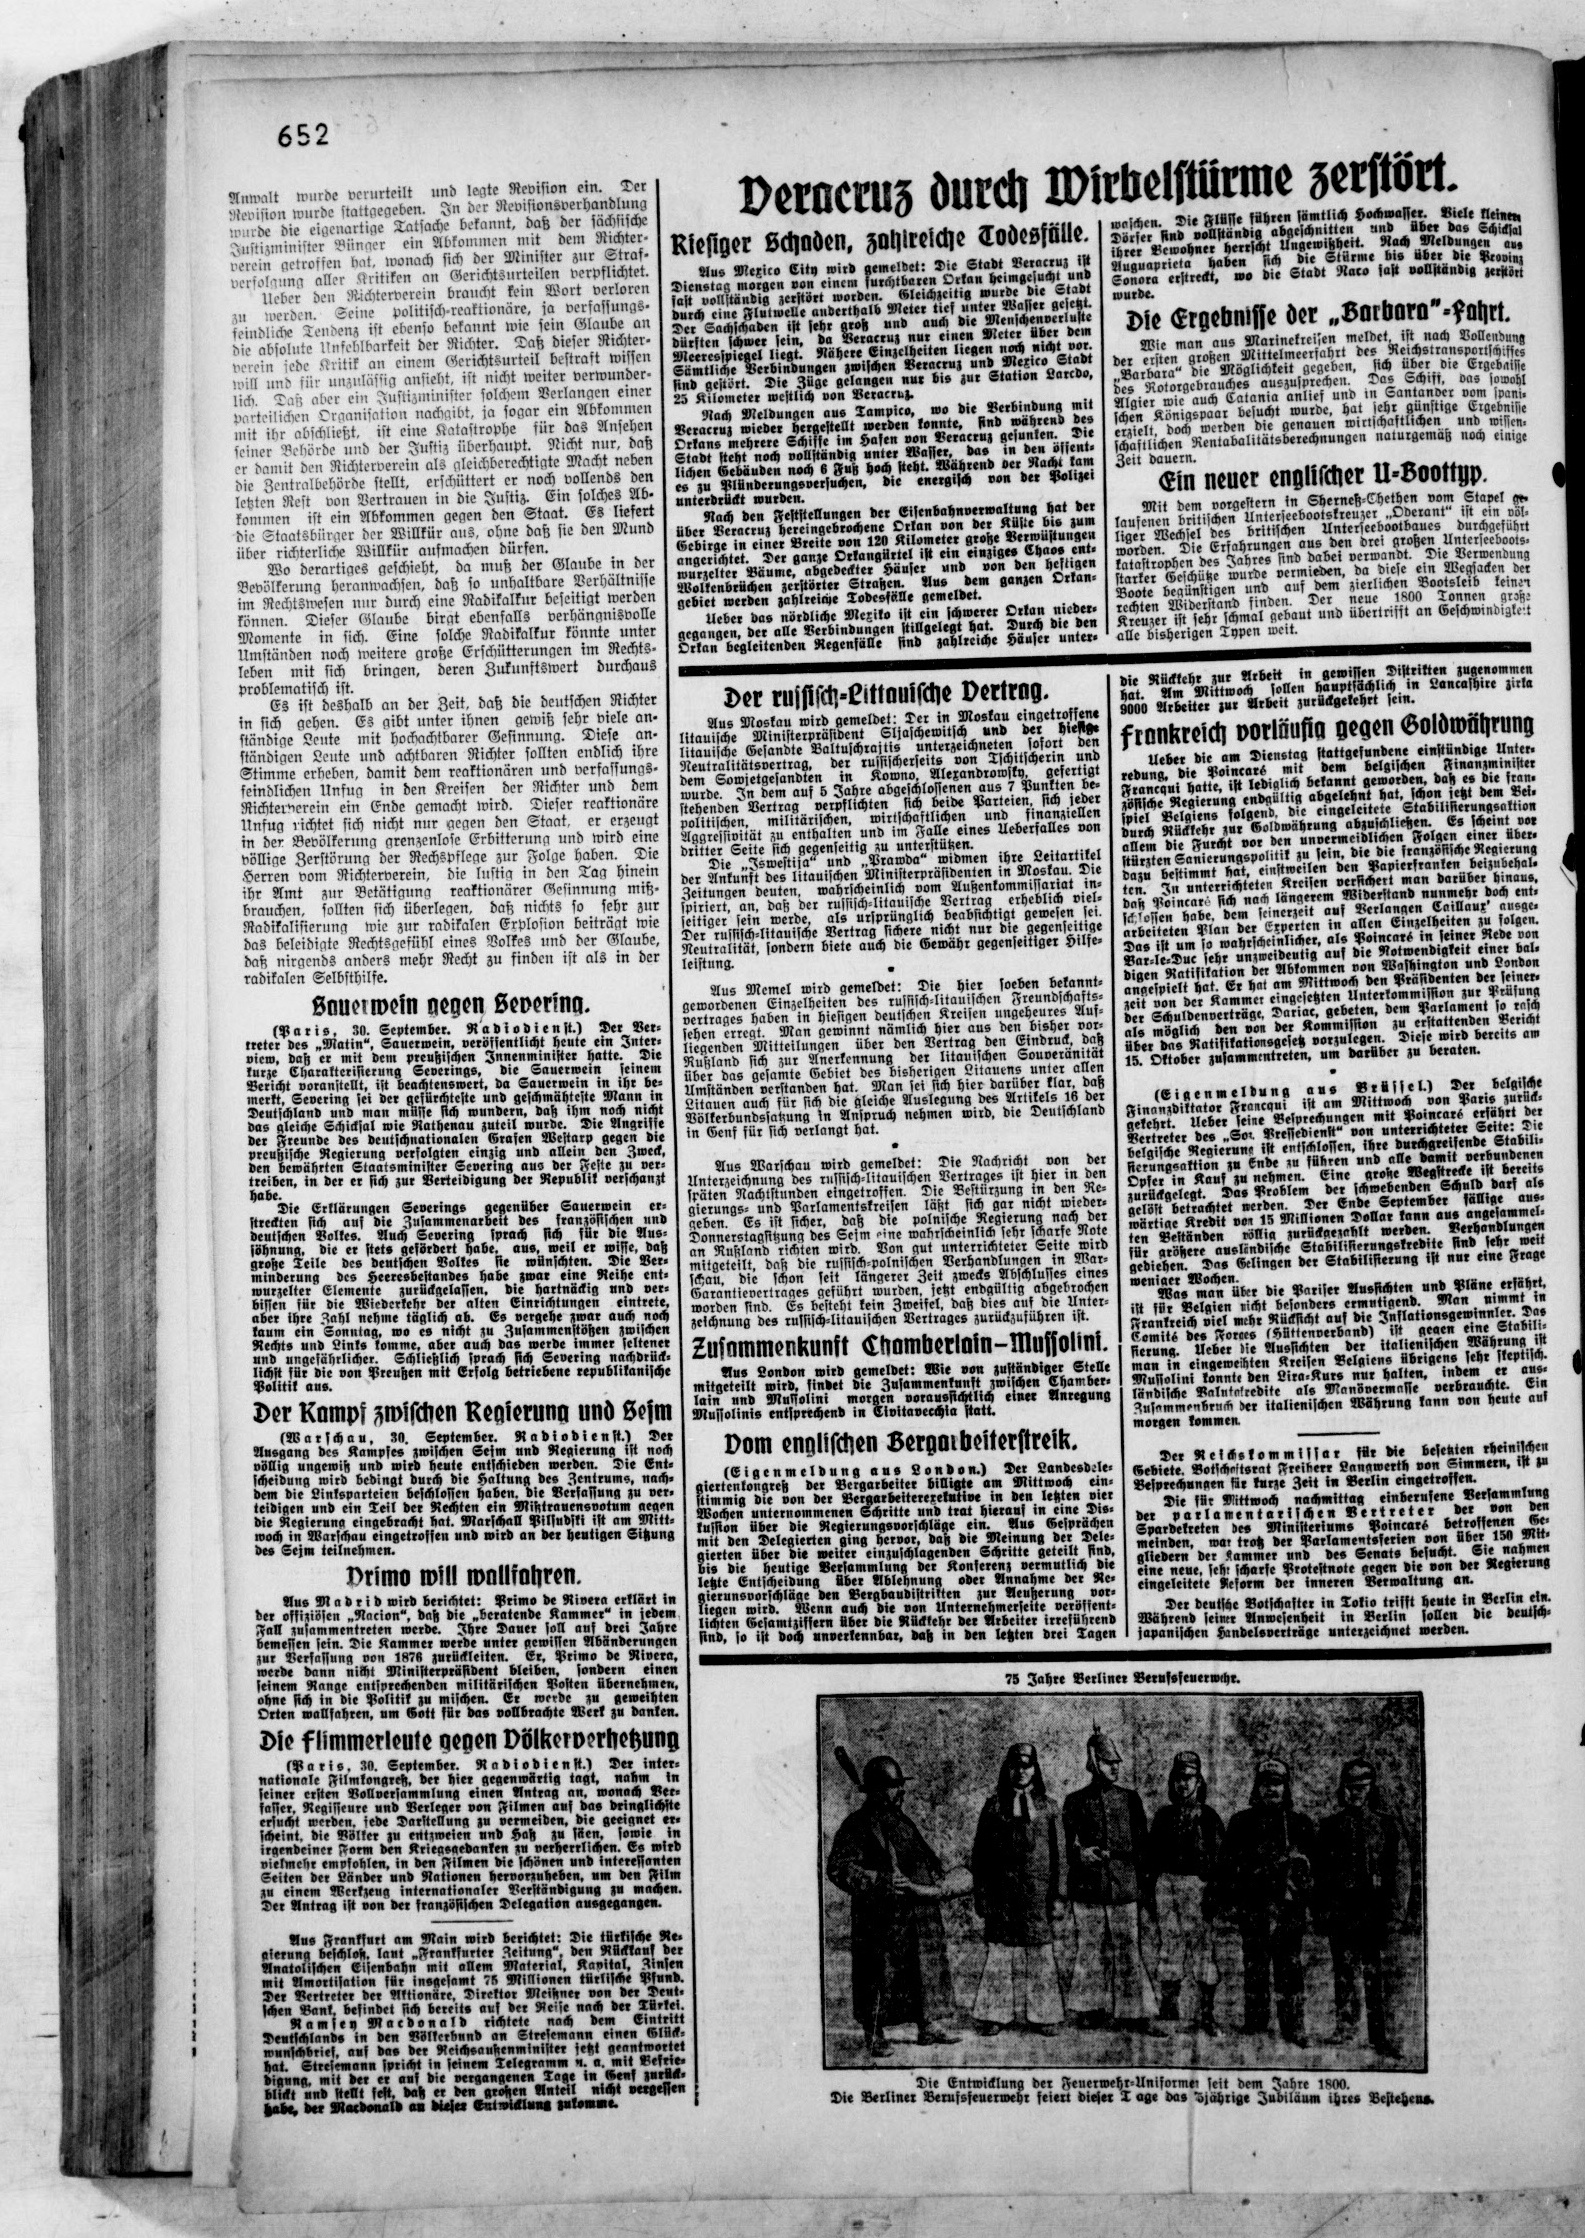 652
Anwalt wurde verurteilt und legte Revision ein. Der
Revision wurde stattgegeben. In der Revisionsverhandlung
wurde die eigenartige Tatsache bekannt, daß der sächsische
Justizminister Bünger ein Abkommen mit dem Richter-
verein getroffen hat, wonach sich der Minister zur Straf-
verfolgung aller Kritiken an Gerichtsurteilen verpflichtet.
Ueber den Richterverein braucht kein Wort verloren
zu werden. Seine politisch-reaktionäre, ja verfassungs-
feindliche Tendenz ist ebenso bekannt wie sein Glaube an
die absolute Unfehlbarkeit der Richter. Daß dieser Richter-
verein jede Kritik an einem Gerichtsurteil bestraft wissen
will und für unzulässig ansieht, ist nicht weiter verwunder-
lich. Daß aber ein Justizminister solchem Verlangen einer
parteilichen Organisation nachgibt, ja sogar ein Abkommen
mit ihr abschließt, ist eine Katastrophe für das Ansehen
seiner Behörde und der Justiz überhaupt. Nicht nur, daß
er damit den Richterverein als gleichberechtigte Macht neben
die Zentralbehörde stellt, erschüttert er noch vollends den
letzten Rest von Vertrauen in die Justiz. Ein solches Ab-
kommen ist ein Abkommen gegen den Staat. Es liefert
die Staatsbürger der Willkür aus, ohne daß sie den Mund
über richterliche Willkür aufmachen dürfen.
Wo derartiges geschieht, da muß der Glaube in der
Bevölkerung heranwachsen, daß so unhaltbare Verhältnisse
im Rechtswesen nur durch eine Radikalkur beseitigt werden
können. Dieser Glaube birgt ebenfalls verhängnisvolle
Momente in sich. Eine solche Radikalkur könnte unter
Umständen noch weitere große Erschütterungen im Rechts-
leben mit sich bringen, deren Zukunftswert durchaus
problematisch ist.
Es ist deshalb an der Zeit, daß die deutschen Richter
in sich gehen. Es gibt unter ihnen gewiß sehr viele an-
ständige Leute mit hochachtbarer Gesinnung. Diese an-
ständigen Leute und achtbaren Richter sollten endlich ihre
Stimme erheben, damit dem reaktionären und verfassungs-
feindlichen Unfug in den Kreisen der Richter und dem
Richterverein ein Ende gemacht wird. Dieser reaktionäre
Unfug richtet sich nicht nur gegen den Staat, er erzeugt
in der Bevölkerung grenzenlose Erbitterung und wird eine
völlige Zerstörung der Rechtspflege zur Folge haben. Die
Herren vom Richterverein, die lustig in den Tag hinein
ihr Amt zur Betätigung reaktionärer Gesinnung miß-
brauchen, sollten sich überlegen, daß nichts so sehr zur
Radikalisierung wie zur radikalen Explosion beiträgt wie
das beleidigte Rechtsgefühl eines Volkes und der Glaube,
daß nirgends anders mehr Recht zu finden ist als in der
radikalen Selbsthilfe.
Sauerwein gegen Severing.
(Paris, 30. September. Radiodienst.) Der Ver-
treter des „Matin“, Sauerwein, veröffentlicht heute ein Inter-
view, daß er mit dem preußischen Innenminister hatte. Die
kurze Charakterisierung Severings, die Sauerwein seinem
Bericht voranstellt, ist beachtenswert, da Sauerwein in ihr be-
merkt, Severing sei der gefürchteste und geschmähteste Mann in
Deutschland und man müsse sich wundern, daß ihm noch nicht
das gleiche Schicksal wie Rathenau zuteil wurde. Die Angriffe
der Freunde des deutschnationalen Grafen Westarp gegen die
preußische Regierung verfolgten einzig und allein den Zweck,
den bewährten Staatsminister Severing aus der Feste zu ver-
treiben, in der er sich zur Verteidigung der Republik verschanzt
habe.
Die Erklärungen Severings gegenüber Sauerwein er-
streckten sich auf die Zusammenarbeit des französischen und
deutschen Volkes. Auch Severing sprach sich für die Aus-
söhnung, die er stets gefördert habe, aus, weil er wisse, daß
große Teile des deutschen Volkes sie wünschten. Die Ver-
minderung des Heeresbestandes habe zwar eine Reihe ent-
wurzelter Elemente zurückgelassen, die hartnäckig und ver-
bissen für die Wiederkehr der alten Einrichtungen eintrete,
aber ihre Zahl nehme täglich ab. Es vergehe zwar auch noch
kaum ein Sonntag, wo es nicht zu Zusammenstößen zwischen
Rechts und Links komme, aber auch das werde immer seltener
und ungefährlicher. Schließlich sprach sich Severing nachdrück-
lichst für die von Preußen mit Erfolg betriebene republikanische
Politik aus.
Der Kampf zwischen Regierung und Sejm
(Warschau, 30. September. Radiodienst.) Der
Ausgang des Kampfes zwischen Sejm und Regierung ist noch
völlig ungewiß und wird heute entschieden werden. Die Ent-
scheidung wird bedingt durch die Haltung des Zentrums, nach-
dem die Linksparteien beschlossen haben, die Verfassung zu ver-
teidigen und ein Teil der Rechten ein Mißtrauensvotum gegen
die Regierung eingebracht hat. Marschall Pilsudski ist am Mitt-
woch in Warschau eingetroffen und wird an der heutigen Sitzung
des Sejm teilnehmen.
Primo will wallfahren.
Aus Madrid wird berichtet: Primo de Rivera erklärt in
der offiziösen „Nacion“, daß die „beratende Kammer“ in jedem
Fall zusammentreten werde. Ihre Dauer soll auf drei Jahre
bemessen sein. Die Kammer werde unter gewissen Abänderungen
zur Verfassung von 1876 zurückleiten. Er, Primo de Rivera,
werde dann nicht Ministerpräsident bleiben, sondern einen
seinem Range entsprechenden militärischen Posten übernehmen,
ohne sich in die Politik zu mischen. Er werde zu geweihten
Orten wallfahren, um Gott für das vollbrachte Werk zu danken.
Die Flimmerleute gegen Völkerverhetzung
(Paris, 30. September. Radiodienst.) Der inter-
nationale Filmkongreß, der hier gegenwärtig tagt, nahm in
seiner ersten Vollversammlung einen Antrag an, wonach Ver-
fasser, Regisseure und Verleger von Filmen auf das dringlichste
ersucht werden, jede Darstellung zu vermeiden, die geeignet er-
scheint, die Völker zu entzweien und Haß zu säen, sowie in
irgendeiner Form den Kriegsgedanken zu verherrlichen. Es wird
vielmehr empfohlen, in den Filmen die schönen und interessanten
Seiten der Länder und Nationen hervorzuheben, um den Film
zu einem Werkzeug internationaler Verständigung zu machen.
Der Antrag ist von der französischen Delegation ausgegangen.
Aus Frankfurt am Main wird berichtet: Die türkische Re-
gierung beschloß, laut „Frankfurter Zeitung“, den Rückkauf der
Anatolischen Eisenbahn mit allem Material, Kapital, Zinsen
mit Amortisation für insgesamt 75 Millionen türkische Pfund.
Der Vertreter der Aktionäre, Direktor Meißner von der Deut-
schen Bank, befindet sich bereits auf der Reise nach der Türkei.
Ramsey Macdonald richtete nach dem Eintritt
Deutschlands in den Völkerbund an Stresemann einen Glück-
wunschbrief, auf das der Reichsaußenminister jetzt geantwortet
hat. Stresemann spricht in seinem Telegramm u. a. mit Befrie-
digung, mit der er auf die vergangenen Tage in Genf zurück-
blickt und stellt fest, daß er den großen Anteil nicht vergessen
habe, der Macdonald an dieser Entwicklung zukomme.
Veracruz durch Wirbelstürme zerstört.
Riesiger Schaden, zahlreiche Todesfälle.
Aus Mexico City wird gemeldet: Die Stadt Veracruz ist
Dienstag morgen von einem furchtbaren Orkan heimgesucht und
fast vollständig zerstört worden. Gleichzeitig wurde die Stadt
durch eine Flutwelle anderthalb Meter tief unter Wasser gesetzt.
Der Sachschaden ist sehr groß und auch die Menschenverluste
dürften schwer sein, da Veracruz nur einen Meter über dem
Meeresspiegel liegt. Nähere Einzelheiten liegen noch nicht vor.
Sämtliche Verbindungen zwischen Veracruz und Mexico Stadt
sind gestört. Die Züge gelangen nur bis zur Station Laredo,
25 Kilometer westlich von Veracruz.
Nach Meldungen aus Tampico, wo die Verbindung mit
Veracruz wieder hergestellt werden konnte, sind während des
Orkans mehrere Schiffe im Hafen von Veracruz gesunken. Die
Stadt steht noch vollständig unter Wasser, das in den öffent-
lichen Gebäuden noch 6 Fuß hoch steht. Während der Nacht kam
es zu Plünderungsversuchen, die energisch von der Polizei
unterdrückt wurden.
Nach den Feststellungen der Eisenbahnverwaltung hat der
über Veracruz hereingebrochene Orkan von der Küste bis zum
Gebirge in einer Breite von 120 Kilometer große Verwüstungen
angerichtet. Der ganze Orkangürtel ist ein einziges Chaos ent-
wurzelter Bäume, abgedeckter Häuser und von den heftigen
Wolkenbrüchen zerstörter Straßen. Aus dem ganzen Orkan-
gebiet werden zahlreiche Todesfälle gemeldet.
Ueber das nördliche Mexiko ist ein schwerer Orkan nieder-
gegangen, der alle Verbindungen stillgelegt hat. Durch die den
Orkan begleitenden Regenfälle sind zahlreiche Häuser unter-
waschen. Die Flüsse führen sämtlich Hochwasser. Viele kleinen
Dörfer sind vollständig abgeschnitten und über das Schicksal
ihrer Bewohner herrscht Ungewißheit. Nach Meldungen aus
Auguaprieta haben sich die Stürme bis über die Provinz
Sonora erstreckt, wo die Stadt Naco fast vollständig zerstört
wurde.
Die Ergebnisse der „Barbara“-Fahrt.
Wie man aus Marinekreisen meldet, ist nach Vollendung
der ersten großen Mittelmeerfahrt des Reichstransportschiffes
„Barbara“ die Möglichkeit gegeben, sich über die Ergebnisse
des Rotorgebrauches auszusprechen. Das Schiff, das sowohl
Algier wie auch Catania anlief und in Santander vom spani-
schen Königspaar besucht wurde, hat sehr günstige Ergebnisse
erzielt, doch werden die genauen wirtschaftlichen und wissen-
schaftlichen Rentabalitätsberechnungen naturgemäß noch einige
Zeit dauern.
Ein neuer englischer U-Boottyp.
Mit dem vorgestern in Sherneß-Chethen vom Stapel ge-
laufenen britischen Unterseebootskreuzer „Oderant“ ist ein völ-
liger Wechsel des britischen Unterseebootbaues durchgeführt
worden. Die Erfahrungen aus den drei großen Unterseeboots-
katastrophen des Jahres sind dabei verwandt. Die Verwendung
starker Geschütze wurde vermieden, da diese ein Wegsacken der
Boote begünstigen und auf dem zierlichen Bootsleib keinen
rechten Widerstand finden. Der neue 1800 Tonnen große
Kreuzer ist sehr schmal gebaut und übertrifft an Geschwindigkeit
alle bisherigen Typen weit.
Der russisch-Littauische Vertrag.
Aus Moskau wird gemeldet: Der in Moskau eingetroffene
litauische Ministerpräsident Sljaschewitsch und der hiesige
litauische Gesandte Baltuschrajtis unterzeichneten sofort den
Neutralitätsvertrag, der russischerseits von Tschitscherin und
dem Sowjetgesandten in Kowno, Alexandrowsky, gefertigt
wurde. In dem auf 5 Jahre abgeschlossenen aus 7 Punkten be-
stehenden Vertrag verpflichten sich beide Parteien, sich jeder
politischen, militärischen, wirtschaftlichen und finanziellen
Aggressivität zu enthalten und im Falle eines Ueberfalles von
dritter Seite sich gegenseitig zu unterstützen.
Die „Iswestija“ und „Prawda“ widmen ihre Leitartikel
der Ankunft des litauischen Ministerpräsidenten in Moskau. Die
Zeitungen deuten, wahrscheinlich vom Außenkommissariat in-
spiriert, an, daß der russisch-litauische Vertrag erheblich viel-
seitiger sein werde, als ursprünglich beabsichtigt gewesen sei.
Der russisch-litauische Vertrag sichere nicht nur die gegenseitige
Neutralität, sondern biete auch die Gewähr gegenseitiger Hilfe-
leistung.
Aus Memel wird gemeldet: Die hier soeben bekannt-
gewordenen Einzelheiten des russisch-litauischen Freundschafts-
vertrages haben in hiesigen deutschen Kreisen ungeheures Auf-
sehen erregt. Man gewinnt nämlich hier aus den bisher vor-
liegenden Mitteilungen über den Vertrag den Eindruck, daß
Rußland sich zur Anerkennung der litauischen Souveränität
über das gesamte Gebiet des bisherigen Litauens unter allen
Umständen verstanden hat. Man sei sich hier darüber klar, daß
Litauen auch für sich die gleiche Auslegung des Artikels 16 der
Völkerbundssatzung in Anspruch nehmen wird, die Deutschland
in Genf für sich verlangt hat.
Aus Warschau wird gemeldet: Die Nachricht von der
Unterzeichnung des russisch-litauischen Vertrages ist hier in den
späten Nachtstunden eingetroffen. Die Bestürzung in den Re-
gierungs- und Parlamentskreisen läßt sich gar nicht wieder-
geben. Es ist sicher, daß die polnische Regierung nach der
Donnerstagsitzung des Sejm eine wahrscheinlich sehr scharfe Note
an Rußland richten wird. Von gut unterrichteter Seite wird
mitgeteilt, daß die russisch-polnischen Verhandlungen in War-
schau, die schon seit längerer Zeit zwecks Abschlusses eines
Garantievertrages geführt wurden, jetzt endgültig abgebrochen
worden sind. Es besteht kein Zweifel, daß dies auf die Unter-
zeichnung des russisch-litauischen Vertrages zurückzuführen ist.
Zusammenkunft Chamberlain-Mussolini.
Aus London wird gemeldet: Wie von zuständiger Stelle
mitgeteilt wird, findet die Zusammenkunft zwischen Chamber-
lain und Mussolini morgen voraussichtlich einer Anregung
Mussolinis entsprechend in Civitavecchia statt.
Vom englischen Bergarbeiterstreik.
(Eigenmeldung aus London.) Der Landesdele-
giertenkongreß der Bergarbeiter billigte am Mittwoch ein-
stimmig die von der Bergarbeiterexekutive in den letzten vier
Wochen unternommenen Schritte und trat hierauf in eine Dis-
kussion über die Regierungsvorschläge ein. Aus Gesprächen
mit den Delegierten ging hervor, daß die Meinung der Dele-
gierten über die weiter einzuschlagenden Schritte geteilt sind,
bis die heutige Versammlung der Konferenz vermutlich die
letzte Entscheidung über Ablehnung oder Annahme der Re-
gierunsvorschläge den Bergbaudistrikten zur Aeußerung vor-
liegen wird. Wenn auch die von Unternehmerseite veröffent-
lichten Gesamtziffern über die Rückkehr der Arbeiter irreführend
sind, so ist doch unverkennbar, daß in den letzten drei Tagen
die Rückkehr zur Arbeit in gewissen Distrikten zugenommen
hat. Am Mittwoch sollen hauptsächlich in Lancashire zirka
9000 Arbeiter zur Arbeit zurückgekehrt sein.
Frankreich vorläufig gegen Goldwährung
Ueber die am Dienstag stattgefundene einstündige Unter-
redung, die Poincaré mit dem belgischen Finanzminister
Francqui hatte, ist lediglich bekannt geworden, daß es die fran-
zösische Regierung endgültig abgelehnt hat, schon jetzt dem Bei-
spiel Belgiens folgend, die eingeleitete Stabilisierungsaktion
durch Rückkehr zur Goldwährung abzuschließen. Es scheint vor
allem die Furcht vor den unvermeidlichen Folgen einer über-
stürzten Sanierungspolitik zu sein, die die französische Regierung
dazu bestimmt hat, einstweilen den Papierfranken beizubehal-
ten. In unterrichteten Kreisen versichert man darüber hinaus,
daß Poincaré sich nach längerem Widerstand nunmehr doch ent-
schlossen habe, dem seinerzeit auf Verlangen Caillaux' ausge-
arbeiteten Plan der Experten in allen Einzelheiten zu folgen.
Das ist um so wahrscheinlicher, als Poincaré in seiner Rede von
Bar-le-Duc sehr unzweideutig auf die Notwendigkeit einer bal-
digen Ratifikation der Abkommen von Washington und London
angespielt hat. Er hat am Mittwoch den Präsidenten der seiner-
zeit von der Kammer eingesetzten Unterkommission zur Prüfung
der Schuldenverträge, Dariac, gebeten, dem Parlament so rasch
als möglich den von der Kommission zu erstattenden Bericht
über das Ratifikationsgesetz vorzulegen. Diese wird bereits am
15. Oktober zusammentreten, um darüber zu beraten.
(Eigenmeldung aus Brüssel.) Der belgische
Finanzdiktator Francqui ist am Mittwoch von Paris zurück-
gekehrt. Ueber seine Besprechungen mit Poincaré erfährt der
Vertreter des „Soz. Pressedienst“ von unterrichteter Seite: Die
belgische Regierung ist entschlossen, ihre durchgreifende Stabili-
sierungsaktion zu Ende zu führen und alle damit verbundenen
Opfer in Kauf zu nehmen. Eine große Wegstrecke ist bereits
zurückgelegt. Das Problem der schwebenden Schuld darf als
gelöst betrachtet werden. Der Ende September fällige aus-
wärtige Kredit von 15 Millionen Dollar kann aus angesammel-
ten Beständen völlig zurückgezahlt werden. Verhandlungen
für größere ausländische Stabilisierungskredite sind sehr weit
gediehen. Das Gelingen der Stabilisierung ist nur eine Frage
weniger Wochen.
Was man über die Pariser Aussichten und Pläne erfährt,
ist für Belgien nicht besonders ermutigend. Man nimmt in
Frankreich viel mehr Rücksicht auf die Inflationsgewinnler. Das
Comité des Forces (Hüttenverband) ist gegen eine Stabili-
sierung. Ueber die Aussichten der italienischen Währung ist
man in eingeweihten Kreisen Belgiens übrigens sehr skeptisch.
Mussolini konnte den Lira-Kurs nur halten, indem er aus-
ländische Valutakredite als Manövermasse verbrauchte. Ein
Zusammenbruch der italienischen Währung kann von heute auf
morgen kommen.
Der Reichskommissar für die besetzten rheinischen
Gebiete, Botschaftsrat Freiherr Langwerth von Simmern, ist zu
Besprechungen für kurze Zeit in Berlin eingetroffen.
Die für Mittwoch nachmittag einberufene Versammlung
der parlamentarischen Vertreter der von den
Spardekreten des Ministeriums Poincaré betroffenen Ge-
meinden, war trotz der Parlamentsferien von über 150 Mit-
gliedern der Kammer und des Senats besucht. Sie nahmen
eine neue, sehr scharfe Protestnote gegen die von der Regierung
eingeleitete Reform der inneren Verwaltung an.
Der deutsche Botschafter in Tokio trifft heute in Berlin ein.
Während seiner Anwesenheit in Berlin sollen die deutsch-
japanischen Handelsverträge unterzeichnet werden.
75 Jahre Berliner Berufsfeuerwehr.
Die Entwicklung der Feuerwehr-Uniformen seit dem Jahre 1800.
Die Berliner Berufsfeuerwehr feiert dieser Tage das 5jährige Jubiläum ihres Bestehens.